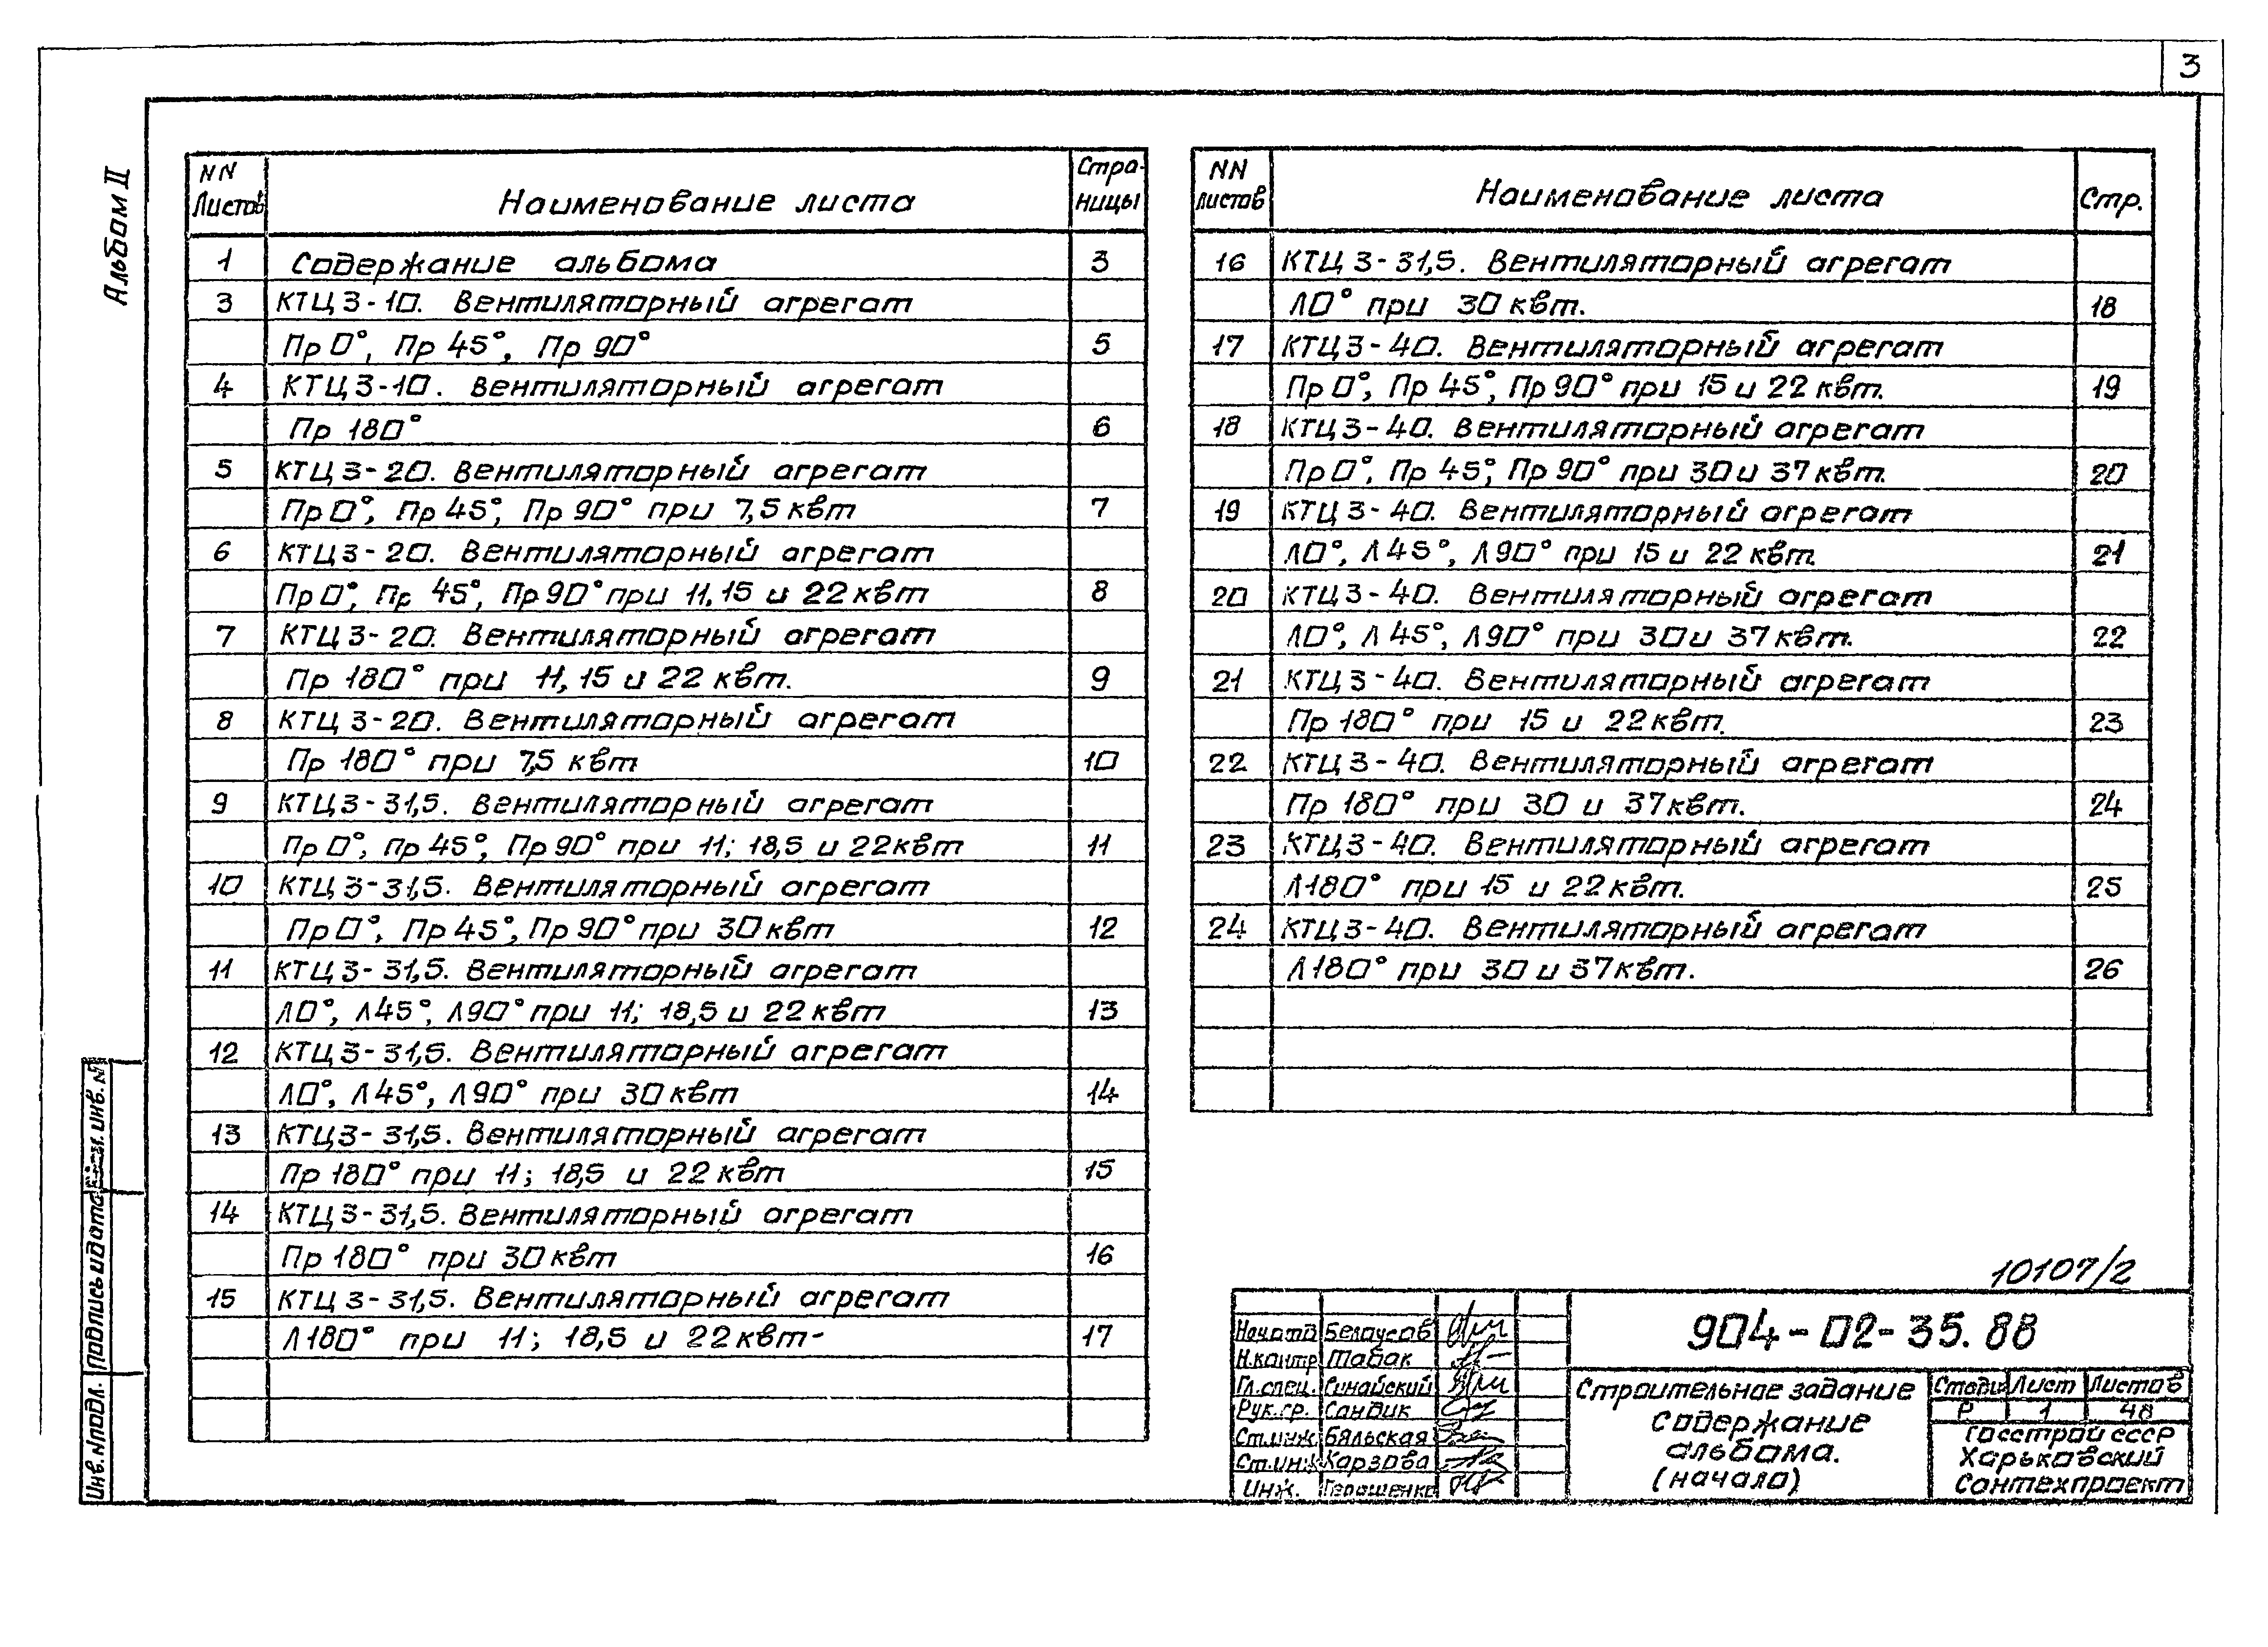 3
Альбом II
NN Листов Наименование листа Страницы
1 Содержание альбома 3
3 КТЦ 3-10. Вентиляторный агрегат
Пр 0°, Пр 45°, Пр 90° 5
4 КТЦ 3-10. Вентиляторный агрегат
Пр 180° 6
5 КТЦ 3-20. Вентиляторный агрегат
Пр 0°, Пр 45°, Пр 90° при 7,5 квт 7
6 КТЦ 3-20. Вентиляторный агрегат
Пр 0°, Пр 45°, Пр 90° при 11, 15 и 22 квт 8
7 КТЦ 3-20. Вентиляторный агрегат
Пр 180° при 11, 15 и 22 квт. 9
8 КТЦ 3-20. Вентиляторный агрегат
Пр 180° при 7,5 квт 10
9 КТЦ 3-31,5. Вентиляторный агрегат
Пр 0°, Пр 45°, Пр 90° при 11; 18,5 и 22 квт 11
10 КТЦ 3-31,5. Вентиляторный агрегат
Пр 0°, Пр 45°, Пр 90° при 30 квт 12
11 КТЦ 3-31,5. Вентиляторный агрегат
Л0°, Л45°, Л90° при 11; 18,5 и 22 квт 13
12 КТЦ 3-31,5. Вентиляторный агрегат
Л0°, Л45°, Л90° при 30 квт 14
13 КТЦ 3-31,5. Вентиляторный агрегат
Пр 180° при 11; 18,5 и 22 квт 15
14 КТЦ 3-31,5. Вентиляторный агрегат
Пр 180° при 30 квт 16
15 КТЦ 3-31,5. Вентиляторный агрегат
Л180° при 11; 18,5 и 22 квт- 17
NN листов Наименование листа Стр.
16 КТЦ 3-31,5. Вентиляторный агрегат
Л0° при 30 квт. 18
17 КТЦ 3-40. Вентиляторный агрегат
Пр 0°, Пр 45°, Пр 90° при 15 и 22 квт. 19
18 КТЦ 3-40. Вентиляторный агрегат
Пр 0°, Пр 45°, Пр 90° при 30 и 37 квт. 20
19 КТЦ 3-40. Вентиляторный агрегат
Л0°, Л45°, Л90° при 15 и 22 квт. 21
20 КТЦ 3-40. Вентиляторный агрегат
Л0°, Л45°, Л90° при 30 и 37 квт. 22
21 КТЦ 3-40. Вентиляторный агрегат
Пр 180° при 15 и 22 квт. 23
22 КТЦ 3-40. Вентиляторный агрегат
Пр 180° при 30 и 37 квт. 24
23 КТЦ 3-40. Вентиляторный агрегат
Л180° при 15 и 22 квт. 25
24 КТЦ 3-40. Вентиляторный агрегат
Л180° при 30 и 37 квт. 26
10107/2
904-02-35.88
Нач.отд Белоусов
Н.контр Табак
Гл.спец. Синайский
Рук.гр. Сандик
Ст.инж. Бяльская
Ст.инж Карзова
Инж. Герашенко
Строительное задание
Содержание
альбома.
(начало)
Стади Лист Листов
Р 1 48
Госстрой СССР
Харьковский
Сантехпроект
Инв.Nподл. Подпись и дата Взам. инв. N